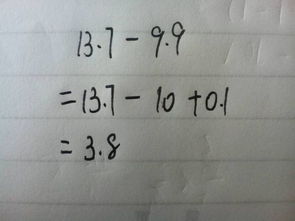 13.7 - 9.9
=13.7 - 10 +0.1
= 3.8